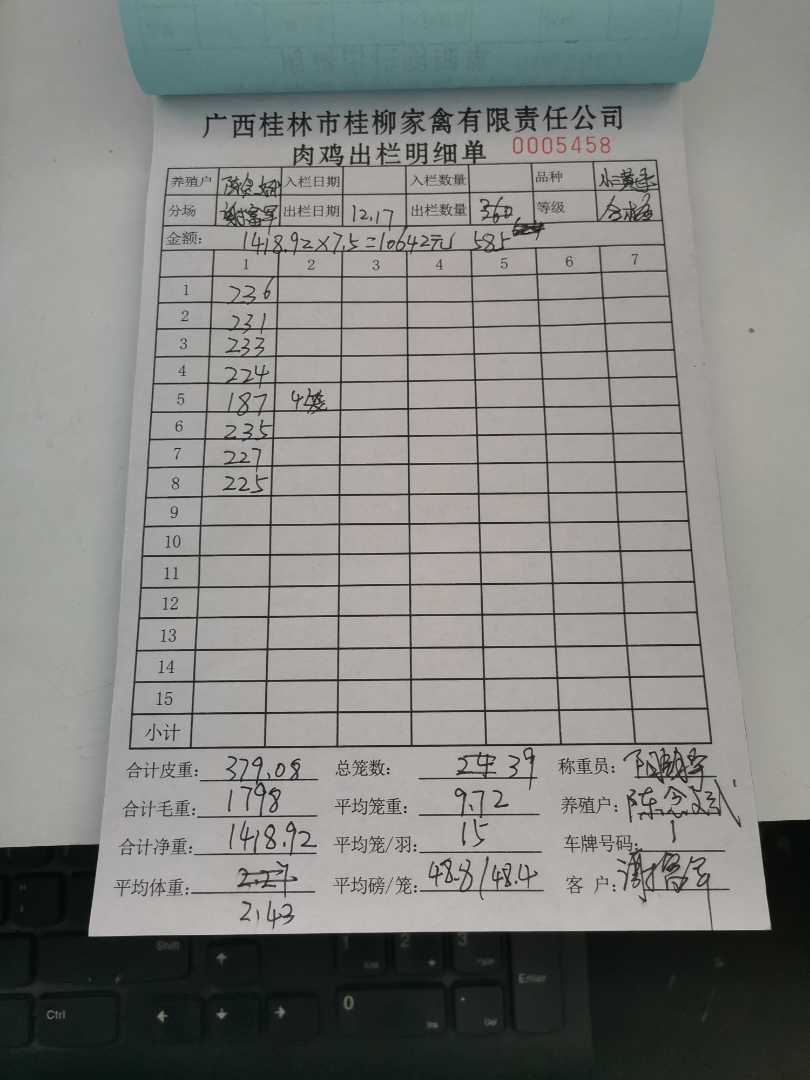 广西桂林市桂柳家禽有限责任公司
肉鸡出栏明细单 0005458
养殖户 入栏日期 入栏数量 品种
分场 谢富军 出栏日期 12.17 出栏数量 360 等级 合格
金额: 1418.92×7.5=10642元 585
1 2 3 4 5 6 7
1 236
2 231
3 233
4 224
5 187 4笼
6 235
7 227
8 225
9
10
11
12
13
14
15
小计
合计皮重: 379.08 总笼数: 24 39 称重员:
合计毛重: 1798 平均笼重: 9.72 养殖户: 陈
合计净重: 1418.92 平均笼/羽: 15 车牌号码: 1
平均体重: 2.27 平均磅/笼: 48.8/48.4 客 户: 谢富军
2.43
Shift
1 2 3
Ctrl 0 Ins . Del Enter